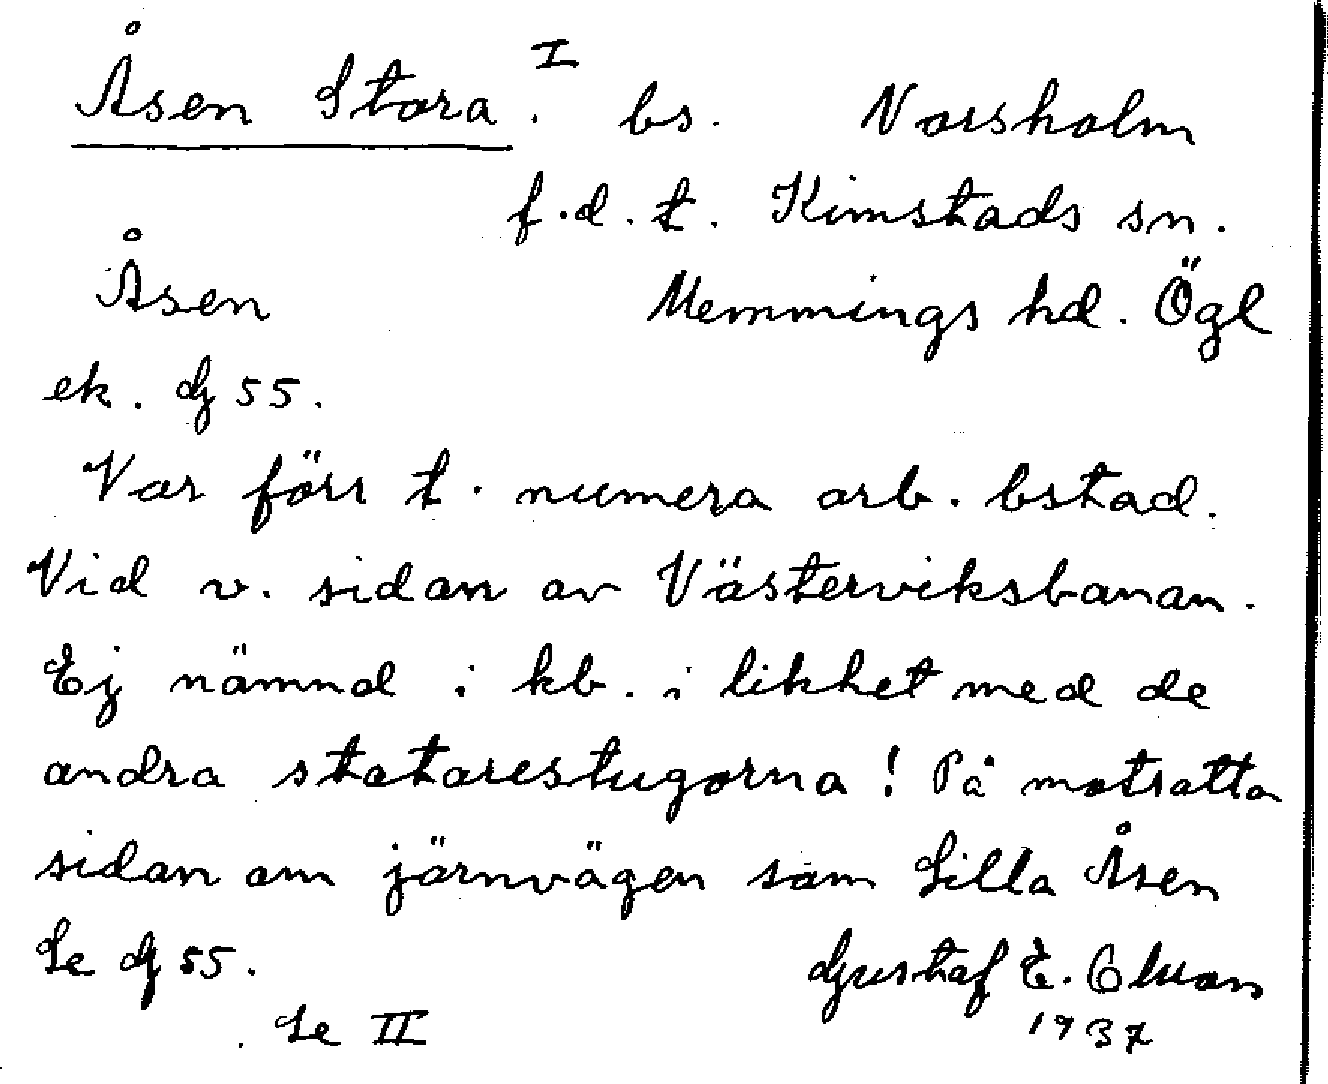 Åsen Stora. I bs. Norsholm
f.d. t. Kimstads sn.
Åsen Memmings hd. Ögl
ek. G 55.
Var förr t. numera arb. bstad.
Vid v. sidan av Västerviksbanan.
Ej nämnd i kb. i likhet med de
andra statarestugorna! På motsatta
sidan om järnvägen som Lilla Åsen
Se G 55. Gustaf E.
Se II 1937